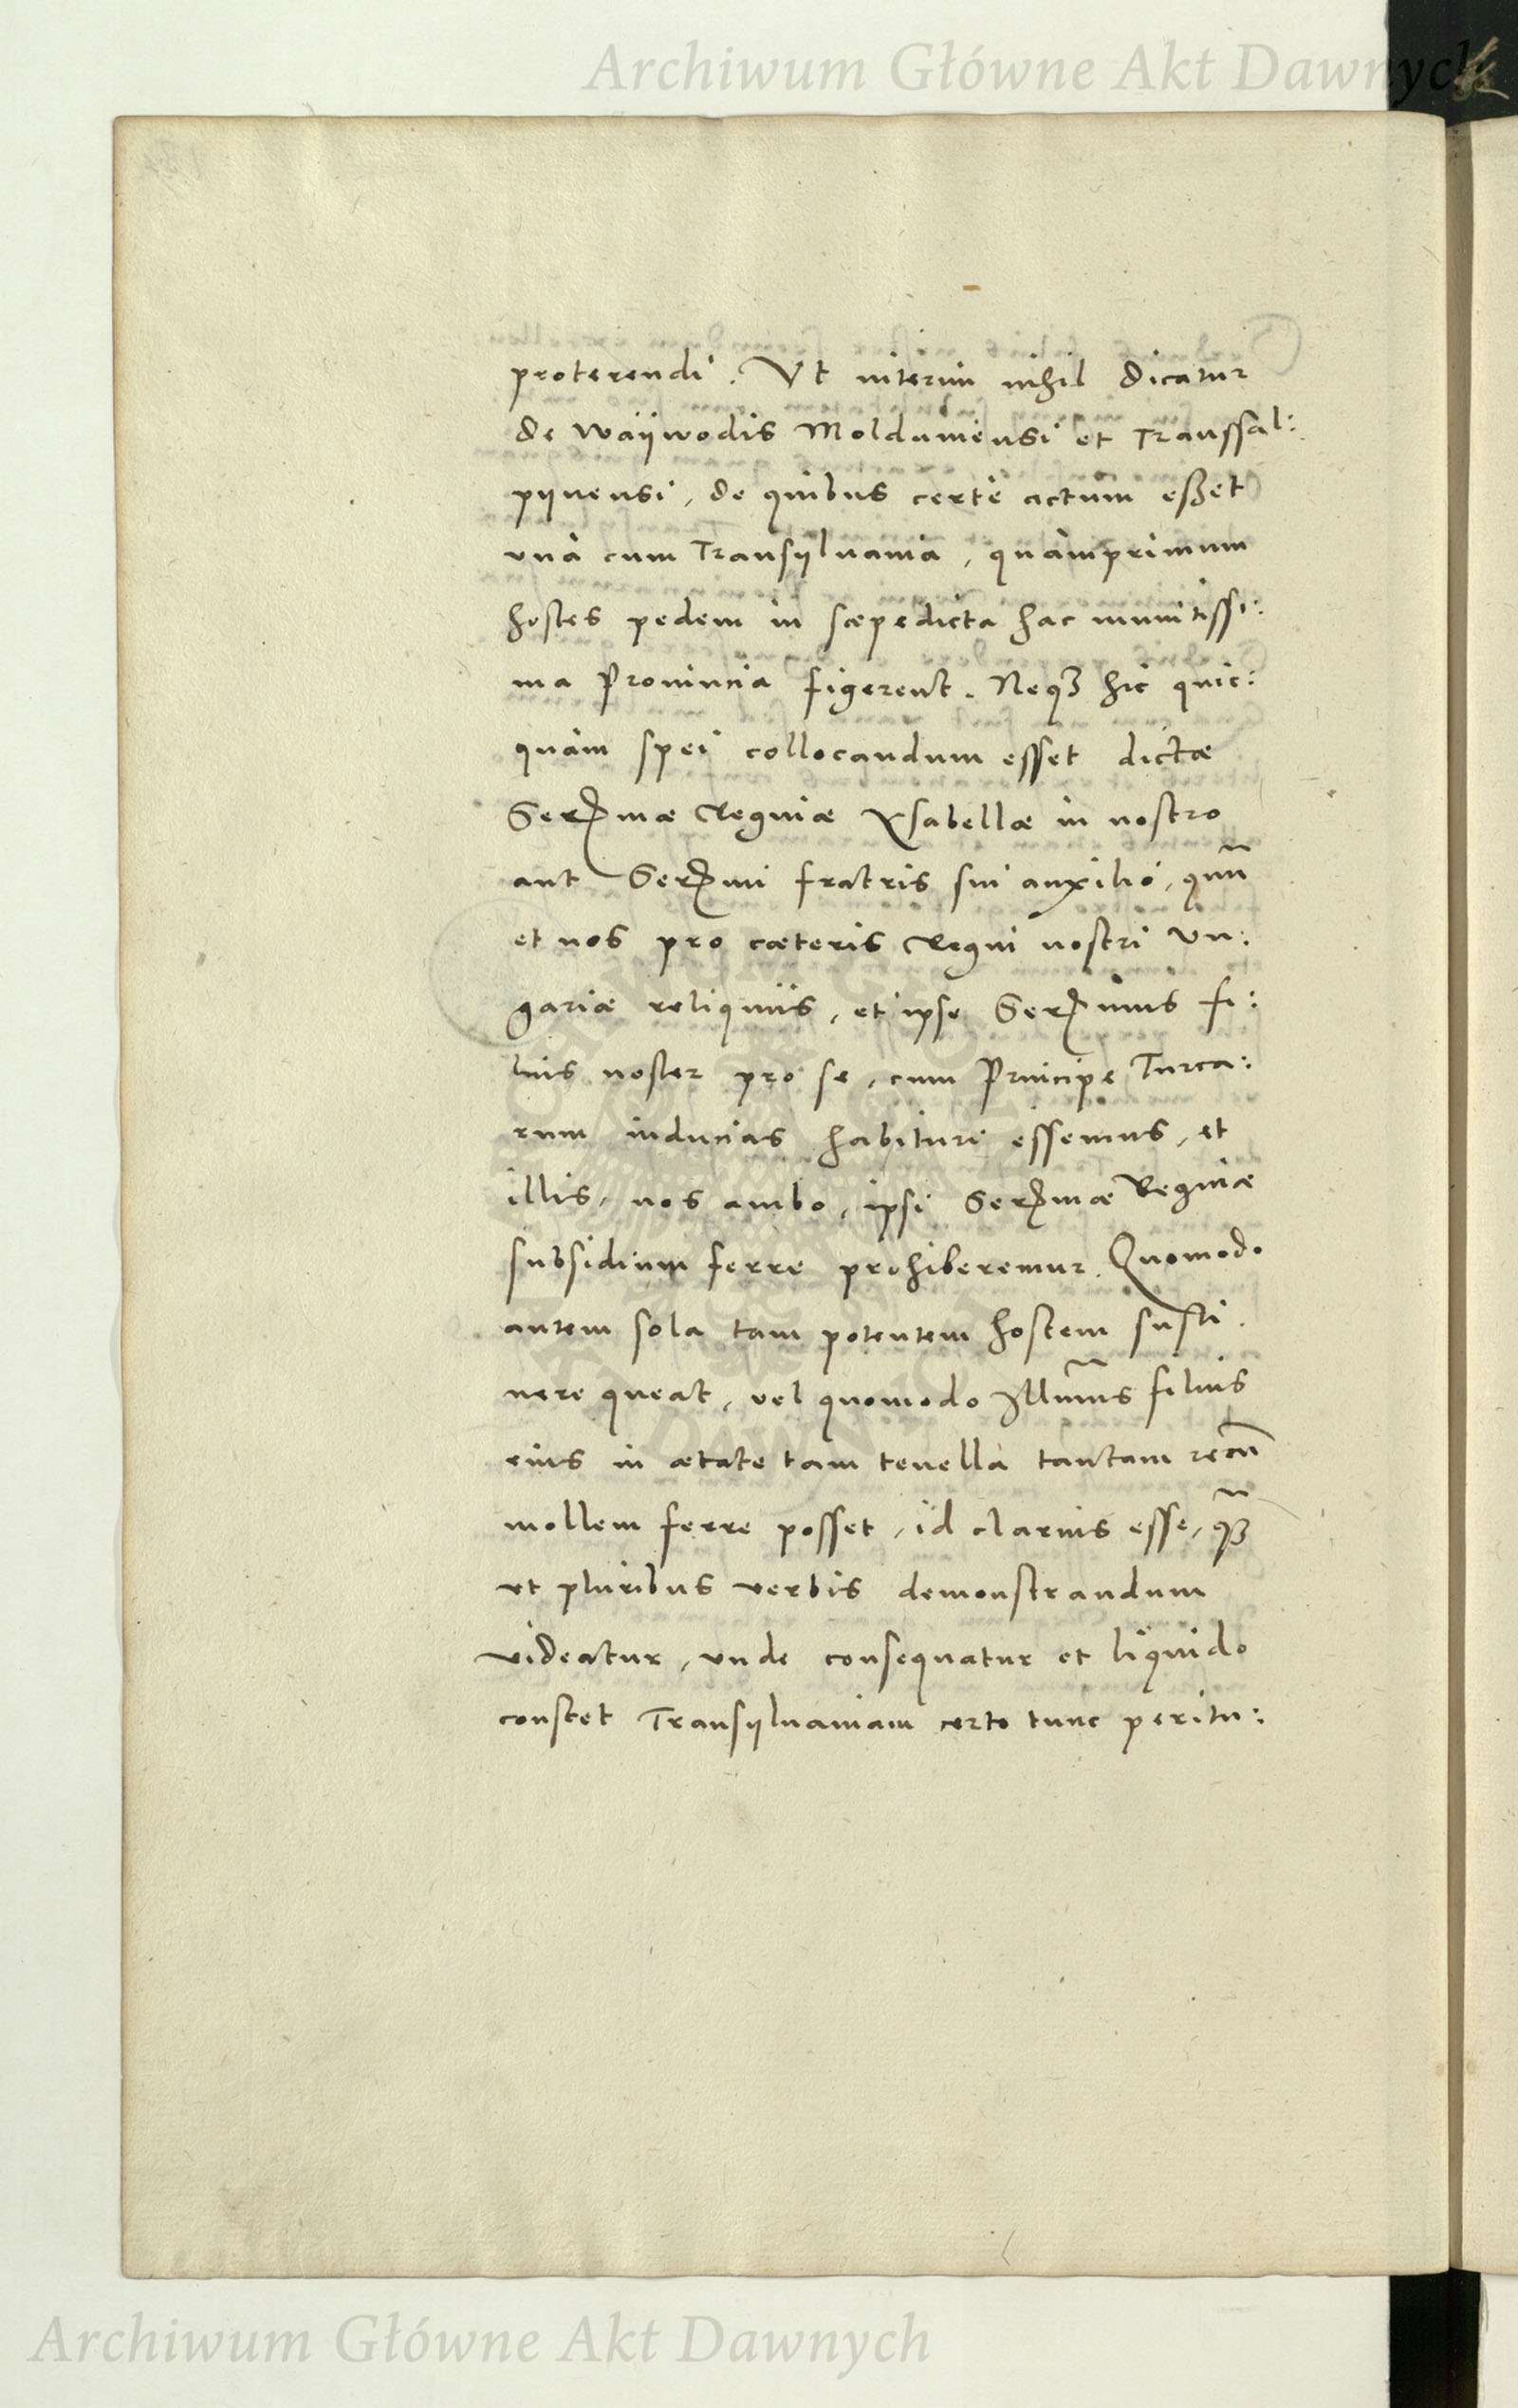 Archiwum Główne Akt Dawnych
proterendi. Vt interim nihil dicatur
de Waijwodis Molduuiensi et Transsal:
pijnensi, de quibus certè actum eßet
vnà cum Transijluania, quàmprimum
hostes pedem in sæpedicta hac munitissi:
ma Prouincia figerent. Neqꝫ hic quic:
quàm spei collocandum esset dictæ
Serᵐᵃᵉ Reginæ Ysabellæ in nostro
aut Serᵐⁱ fratris sui auxilio, qũn
et nos pro cæteris Regni nostri Vn:
gariæ reliquijs, et ipse Serᵐᵘˢ fi:
lius noster pro se, cum Principe Turca:
rum inducias habituri essemus, et
illis, nos ambo, ipsi Serᵐᵃᵉ Reginæ
subsidium ferre prohiberemur. Quomodo
autem sola tam potentem hostem susti:
nere queat, vel quomodo Illm̃us filius
eius in ætate tam tenella tantam rerũ
mollem ferre posset, id clarius esse, qꝫ̃
vt pluribus verbis demonstrandum
videatur, vnde consequatur et liquido
constet Transijluaniam certo tunc peritu:
Archiwum Główne Akt Dawnych